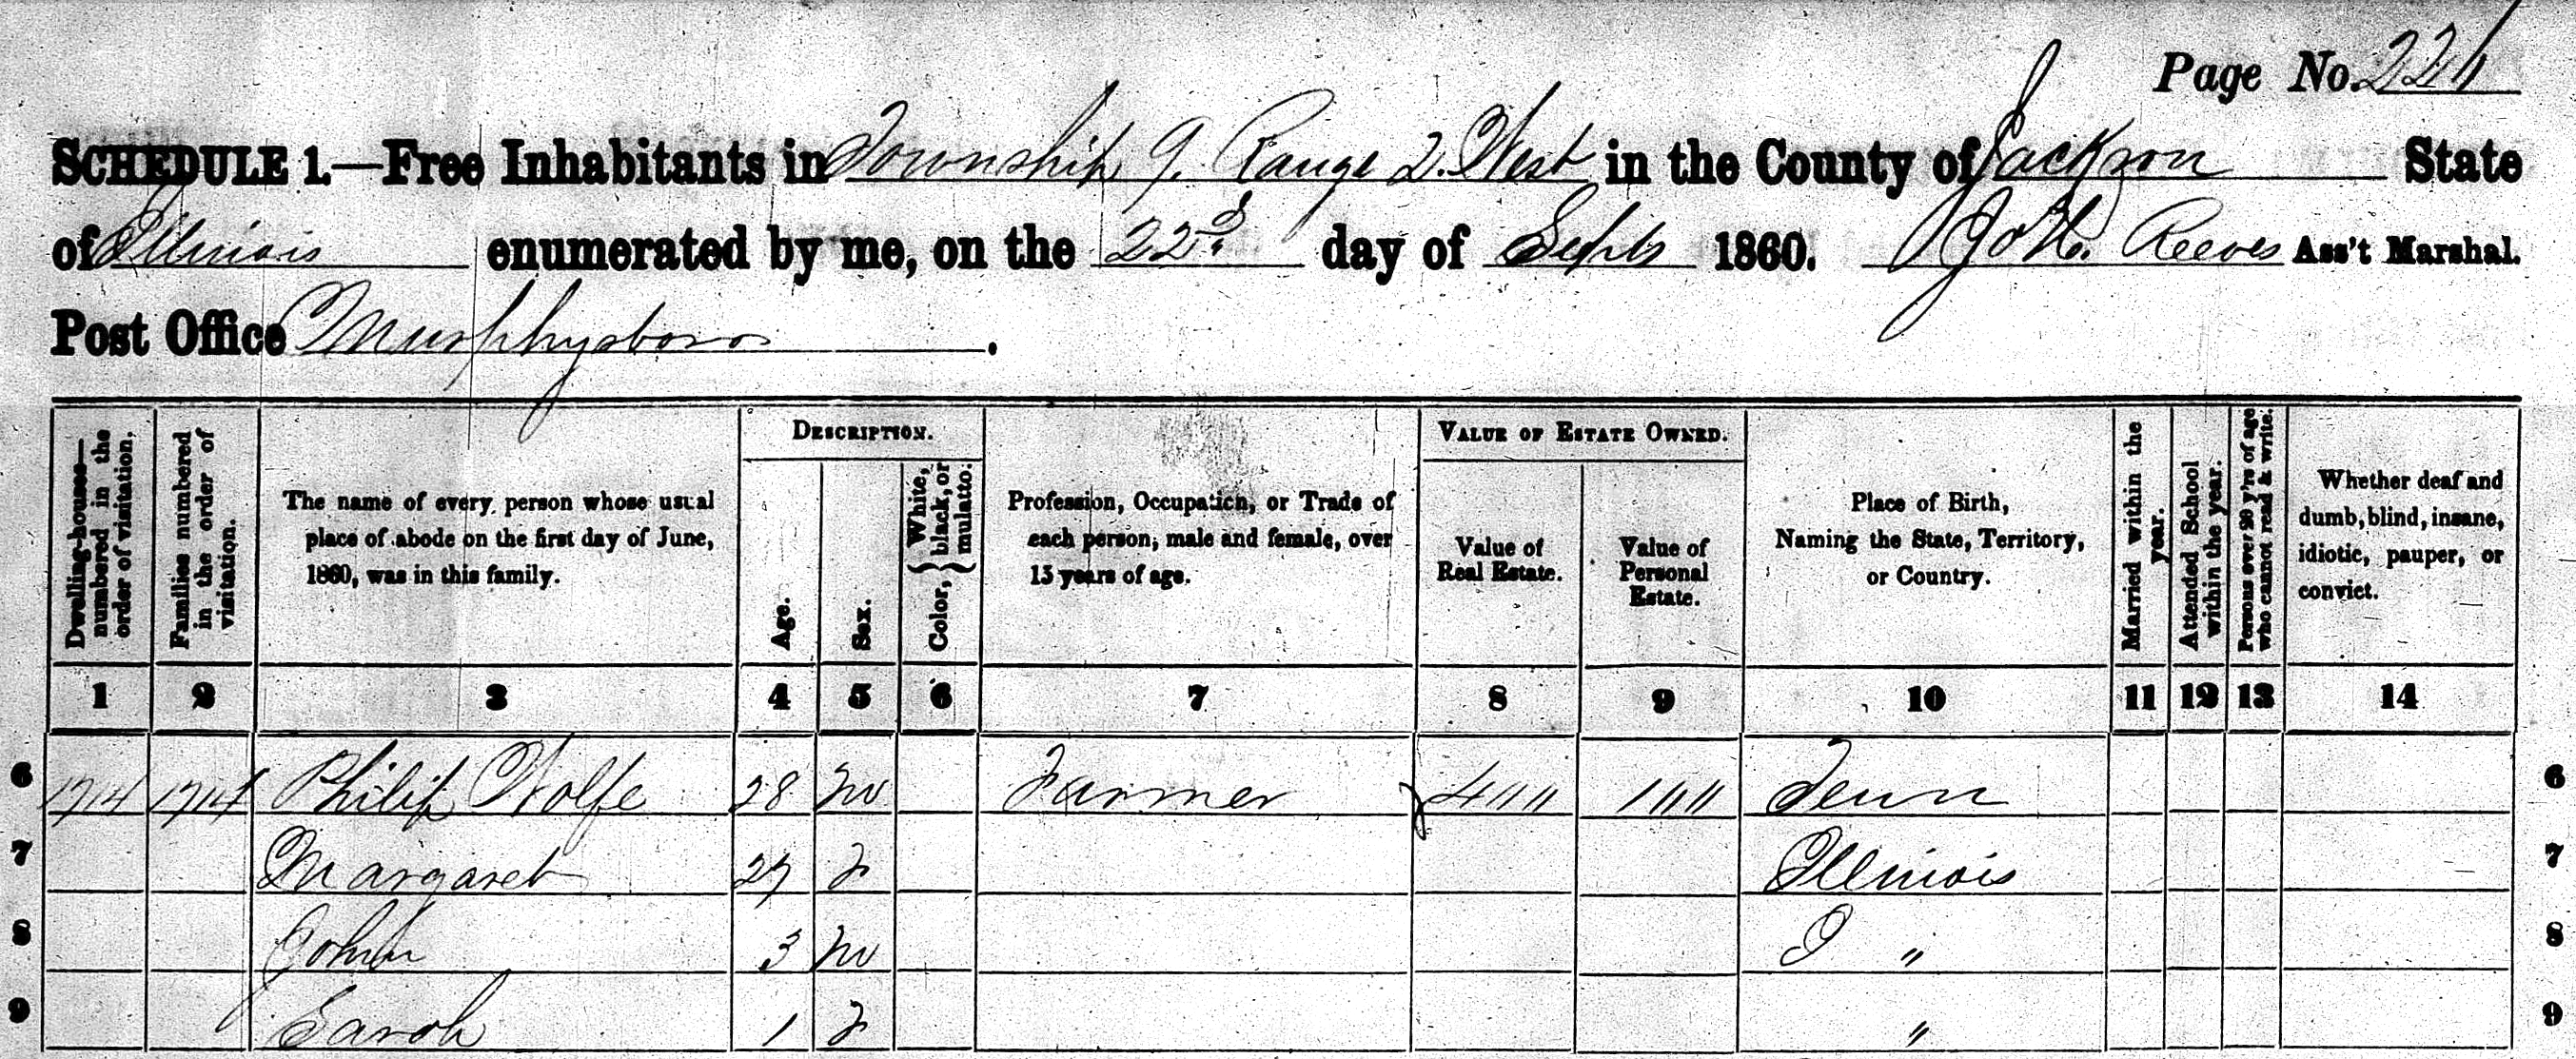 Page No. 221
SCHEDULE 1.—Free Inhabitants in Township 9. Range 2. West in the County of Jackson State
of Illinois enumerated by me, on the 22d. day of Sept 1860. Reeves Ass't Marshal.
Post Office Murphysboro.
Dwelling-houses—numbered in the order of visitation.
Families numbered in the order of visitation.
The name of every person whose usual
place of abode on the first day of June,
1860, was in this family.
DESCRIPTION.
Age.
Sex.
Color, { White, black, or mulatto.
Profession, Occupation, or Trade of
each person, male and female, over
15 years of age.
VALUE OF ESTATE OWNED.
Value of
Real Estate.
Value of
Personal
Estate.
Place of Birth,
Naming the State, Territory,
or Country.
Married within the year.
Attended School within the year.
Persons over 20 y'rs of age who cannot read & write.
Whether deaf and
dumb, blind, insane,
idiotic, pauper, or
convict.
1 2 3 4 5 6 7 8 9 10 11 12 13 14
6 1714 1714 Philip Wolfe 28 m Farmer 400 100 Tenn 6
7 Margaret 27 f Illinois 7
8 John 3 m " 8
9 Sarah 1 f " 9